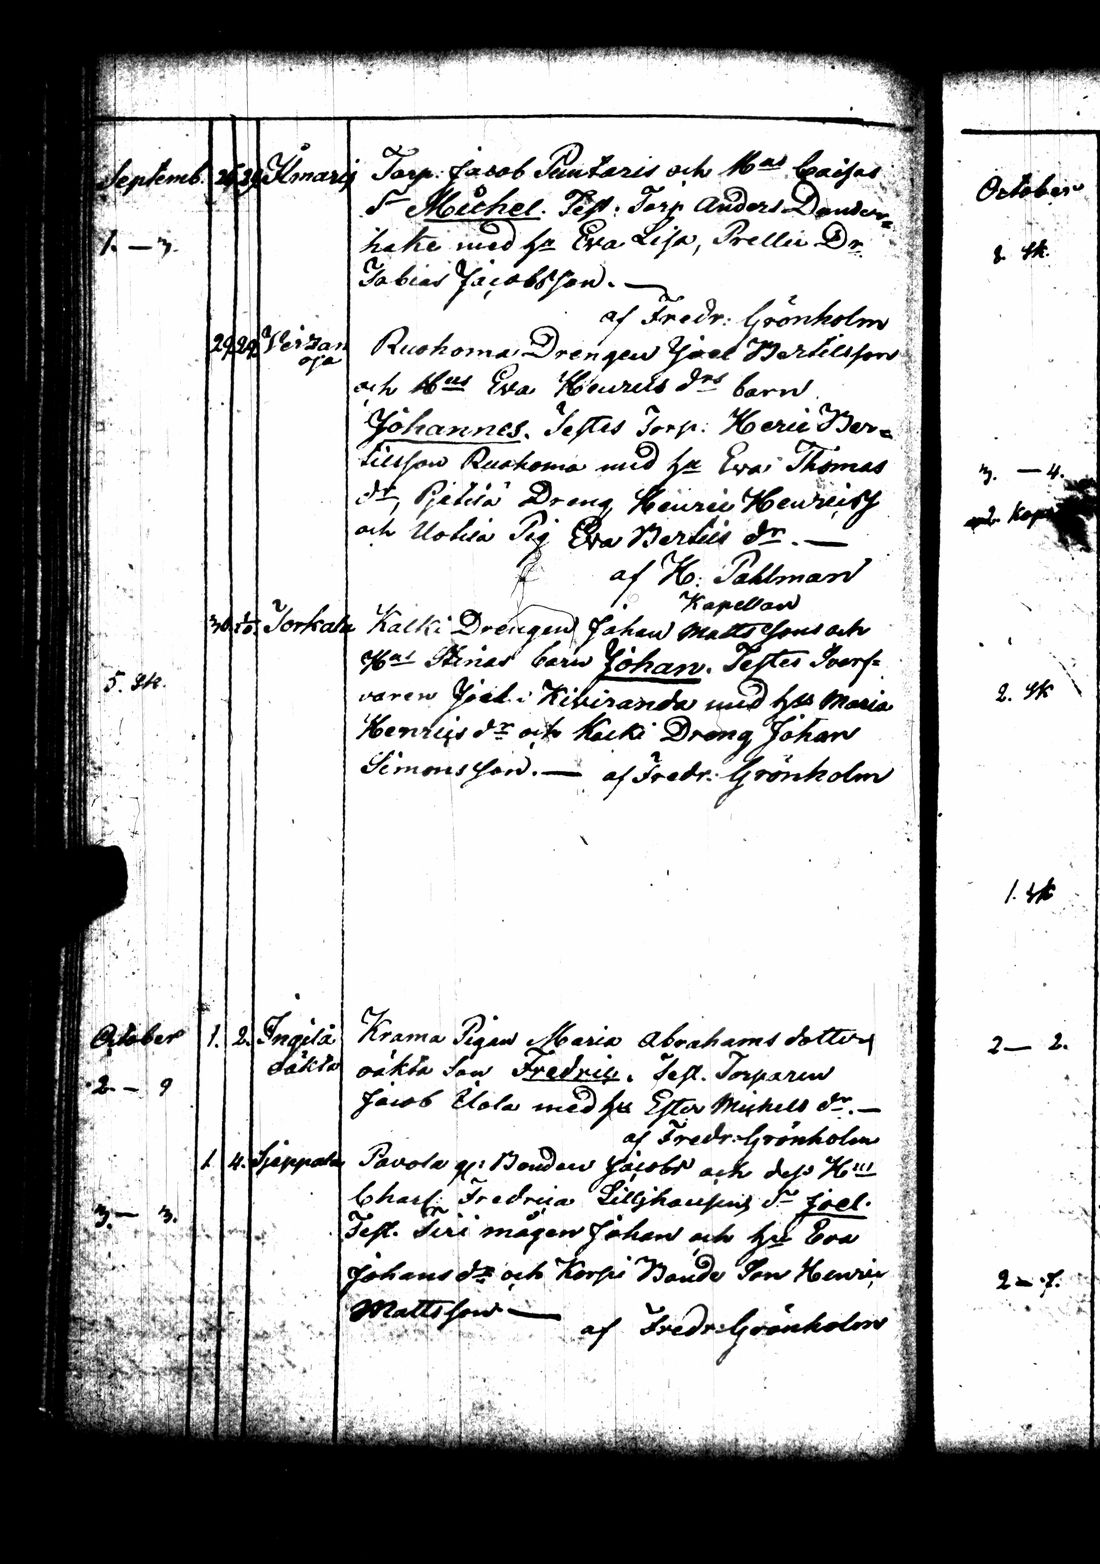 Septemb. 26 29 Ylmarij Torp: Jacob Puntaris och H:us Caisas
S:n Michel. Test: Torp Anders Donder=
1. — 3. hake med hu Eva Lisa, Prellu Dr
Tobias Jacobsson. —
af Fredr: Grönholm
29 29 Veisan Ruohoma Drengen Joel Bertilsson
oja och H:us Eva Henrics d:rs barn
Johannes. Testes Torp: Henric Ber=
tilsson Ruohoma med hu Eva Thomas
d:r, Dreng Henric Henricss
och Uotila Pig Eva Bertils d:r. —
af H: Pahlman
Kapellan
30 Torkala Kalki Drengen Johan Mattssons och
H:us Stinas barn Johan. Testes Sverf=
5. sk. varen Joel Kiviranda med hu Maria
Henrics d:r och Kalki Dreng Johan
Simonsson. — af Fredr: Grönholm
October 1. 2. Ingilä Krama Pigan Maria Abrahams dotters
oäkta oäkta Son Fredric. Test. Torparen
2 — 9 Jacob Uola med hu Ester Michels d:r. —
af Fredr: Grönholm
1. 4. Sieppala Pavola gs: Bonden Jacobs och dess H:us
Charl: Fredrica S:n Joel.
3. — 3. Test. mågen Johan och hu Eva
Johans d:r och Korpi Bonde Son Henric
Mattsson —
af Fredr: Grönholm
October
2. sk.
3. — 4.
2. sk
1. sk
2 — 2.
2 — 7.